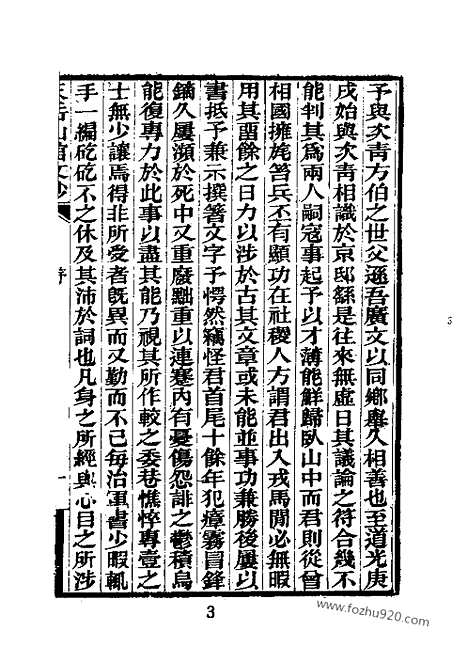 予與次青方伯之世父遜吾廣文以同鄉舉久相善也至道光庚
戌始與次青相識於京邸繇是往來無虛日其議論之符合幾不
能判其爲兩人嗣寇事起予以才薄能鮮歸臥山中而君則從曾
相國擁旄笞兵丕有顯功在社稷人方謂君出入戎馬閒必無暇
用其畱餘之日力以涉於古其文章或未能並事功兼勝後屢以
書抵予兼示撰箸文字予愕然竊怪君首尾十餘年犯瘴霧冒鋒
鏑久屢瀕於死中又重廢黜重以連蹇內有憂傷怨誹之鬱積烏
能復專力於此事以盡其能乃視其所作較之委巷憔悴專壹之
士無少讓焉得非所受者旣異而又勤而不已每治軍書少暇輒
手一編矻矻不之休及其沛於詞也凡身之所經與心目之所涉
天岳山館文鈔
序
一
3
5
www.fozhu920.com